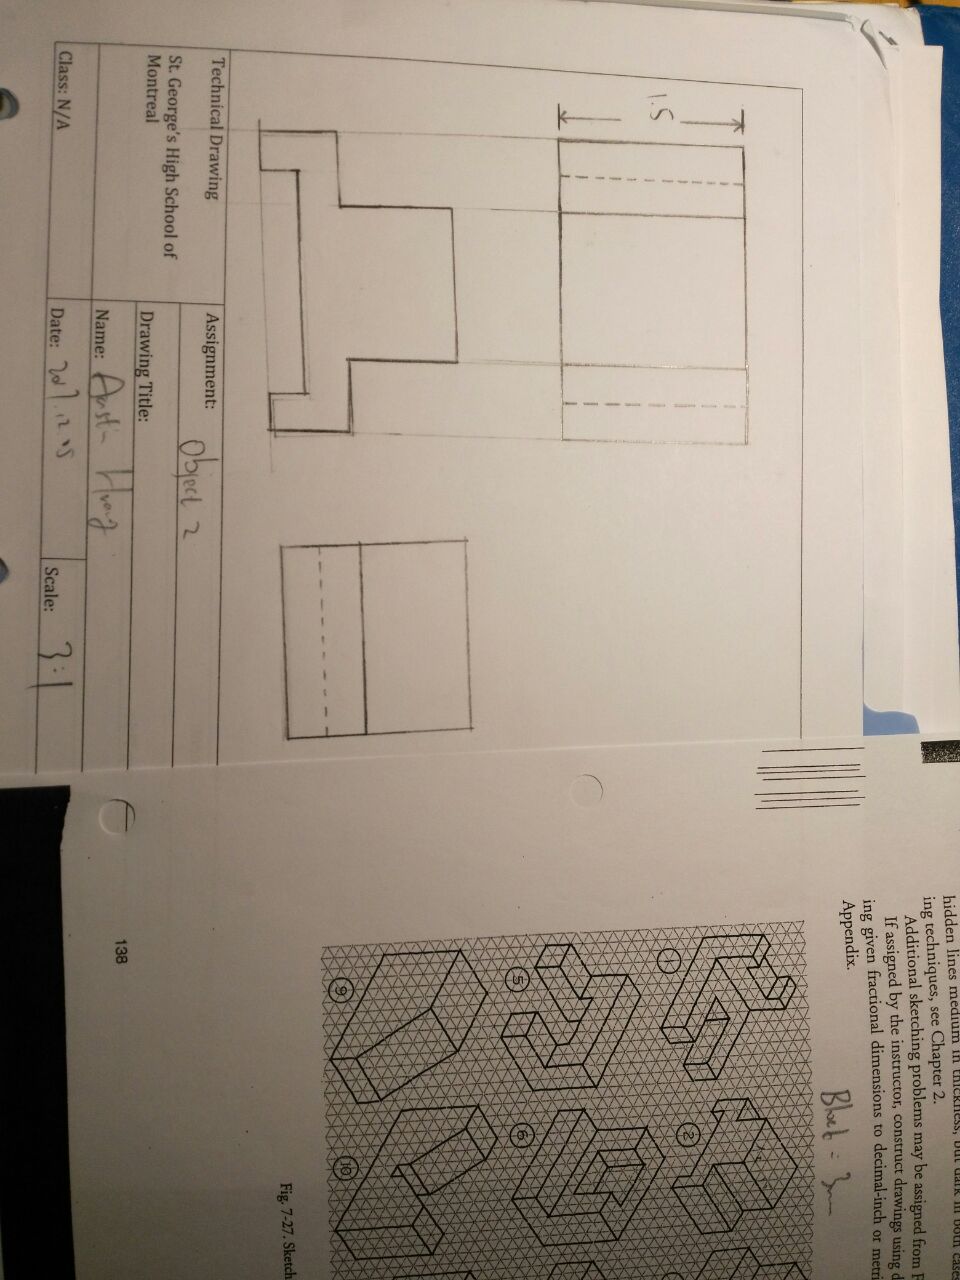 1.5
Technical Drawing
St. George's High School of
Montreal
Class: N/A
Assignment: Object 2
Drawing Title:
Name: Austin
Date:
Scale: 3:1
hidden lines medium in thickness, but dark in both case
ing techniques, see Chapter 2.
Additional sketching problems may be assigned from
If assigned by the instructor, construct drawings using
ing given fractional dimensions to decimal-inch or metr
Appendix.
1
2
5
6
9
10
Fig. 7-27. Sketch
138